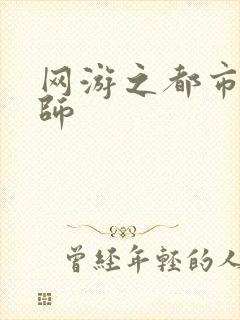 网游之都市
師
曾經年輕的人